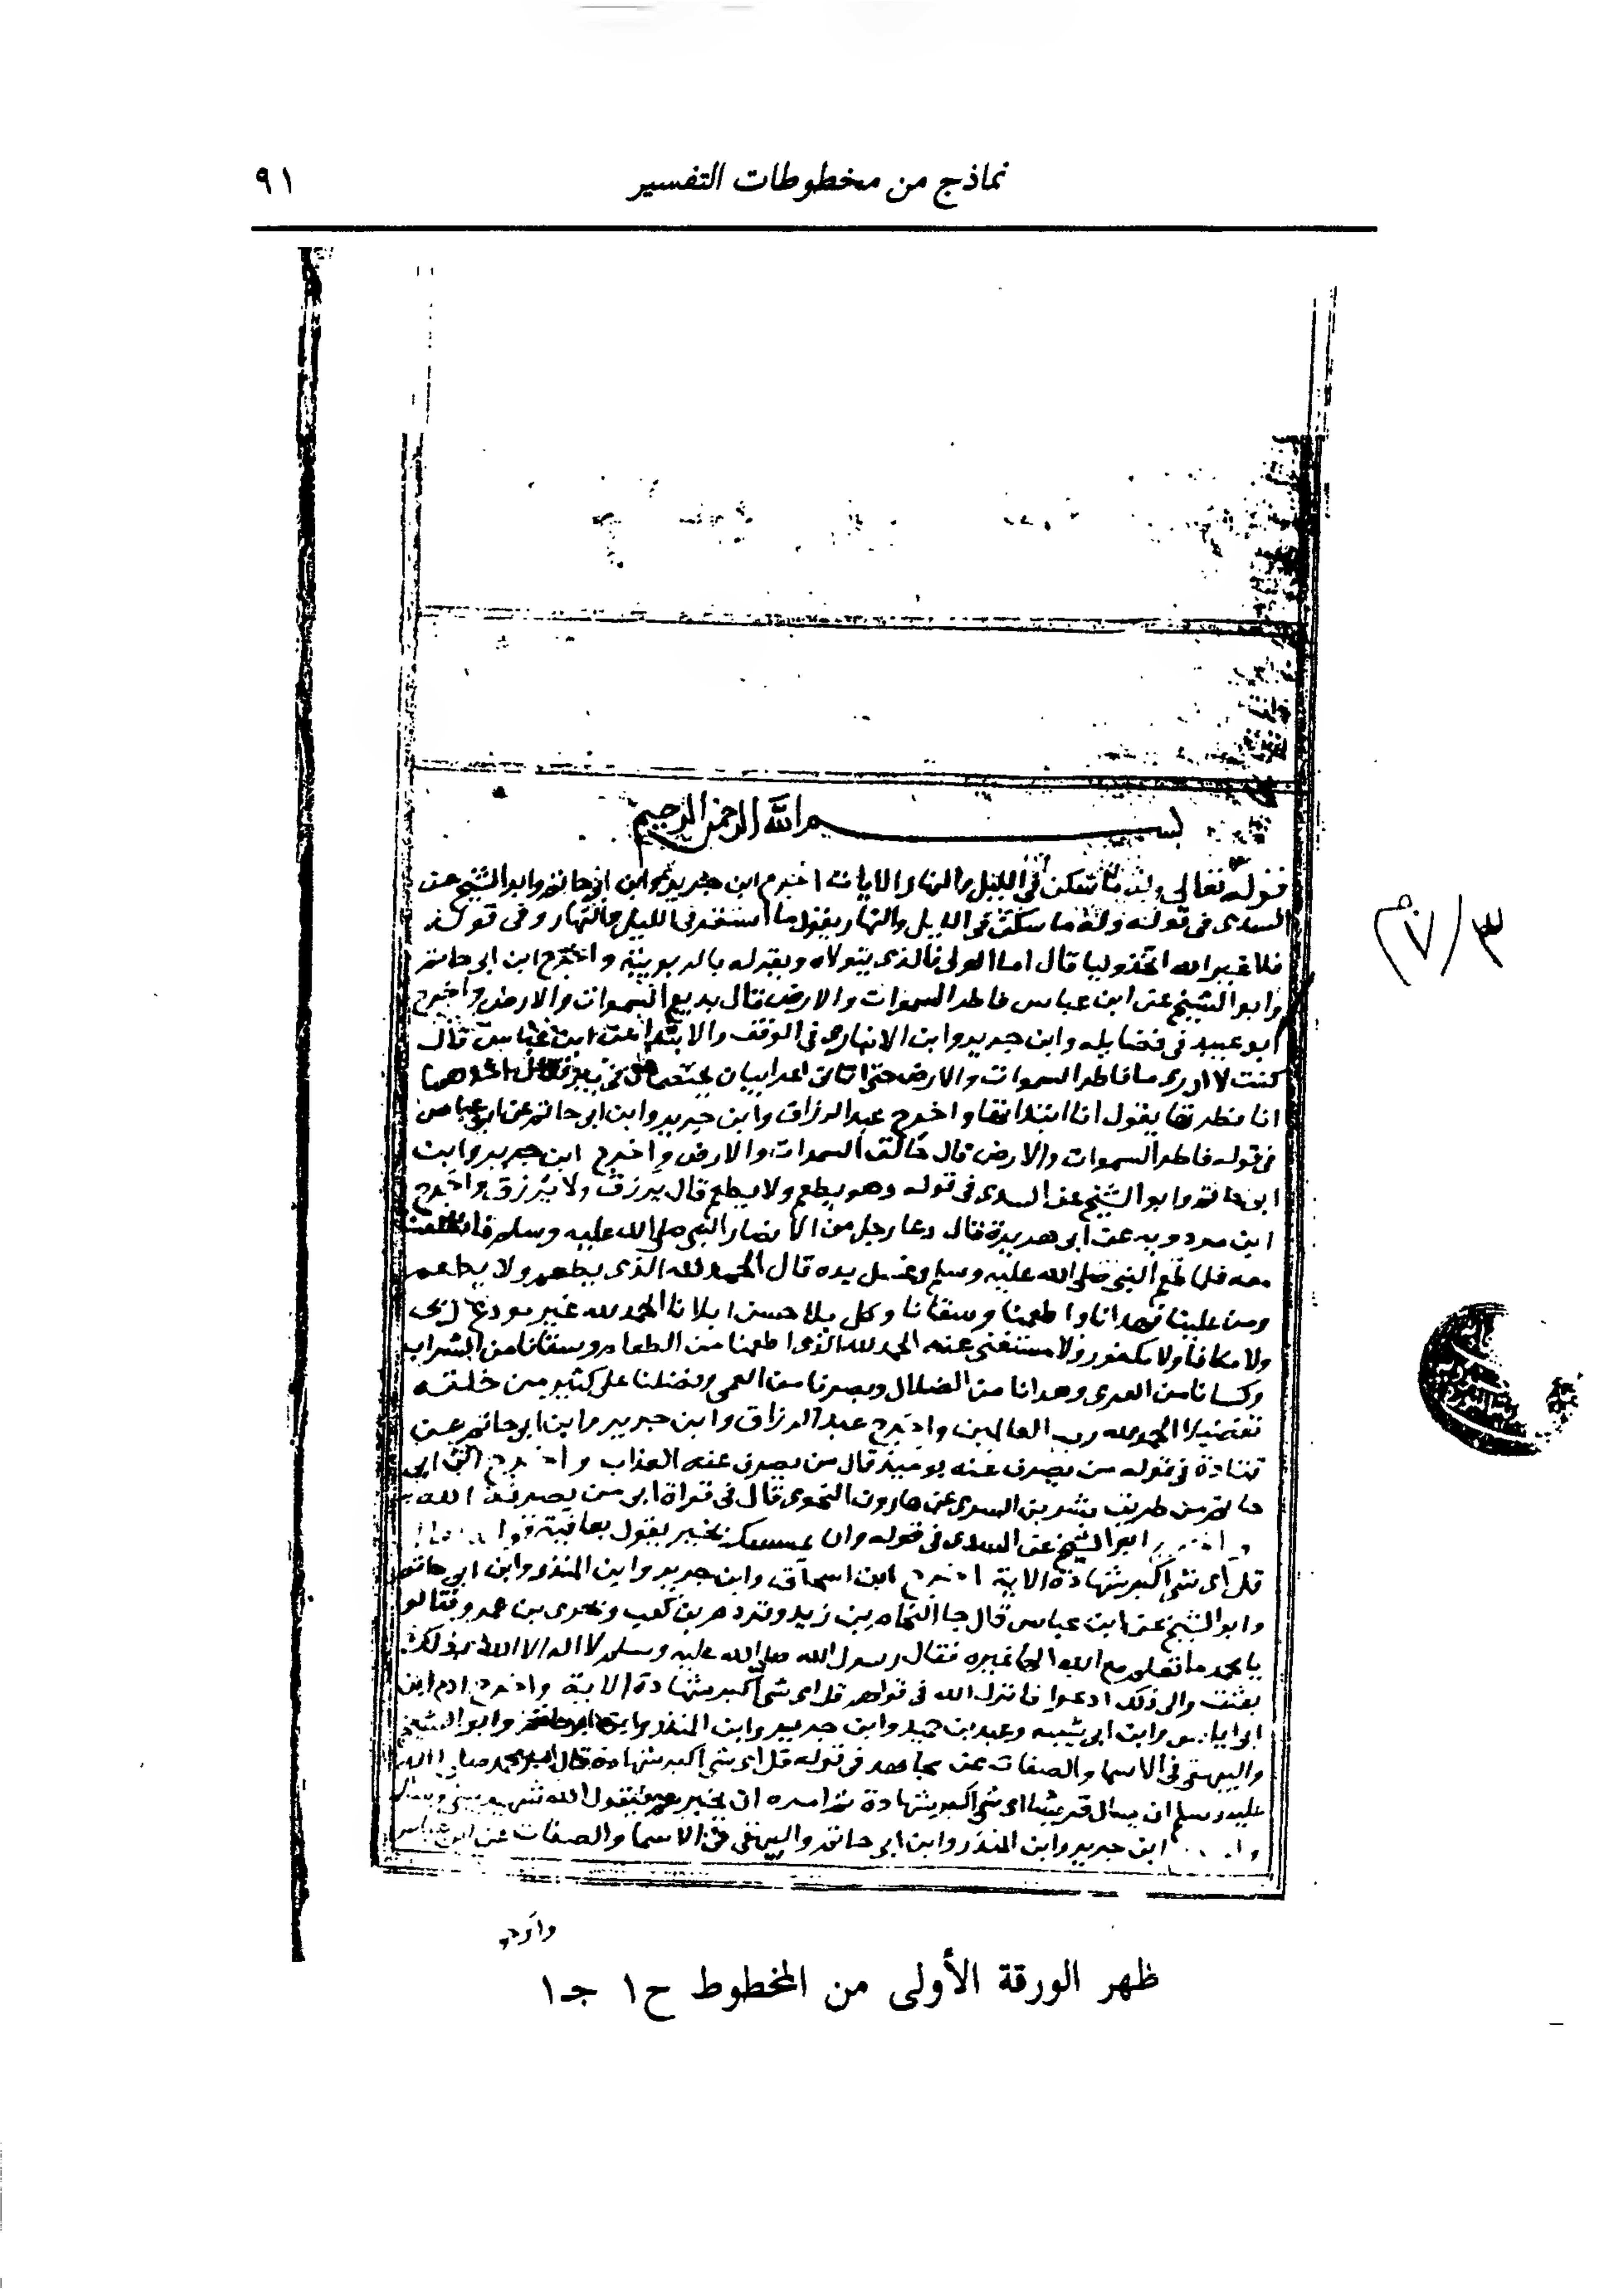 نماذج من مخطوطات التفسير ٩١
بسم الله الرحمن الرحيم
قوله تعالى وله ما سكن في الليل والنهار الايات اخرج ابن جرير وابن ابي حاتم وابو الشيخ عن
السدى فى قوله وله ما سكن فى الليل والنهار يقول ما استقر فى الليل والنهار وفى قوله
قل اغير الله اتخذ وليا قال اما الولى فالذى يتولاه ويقر له بالربوبية واخرج ابن ابى حاتم
وابو الشيخ عن ابن عباس فاطر السموات والارض قال بديع السموات والارض واخرج
ابو عبيد فى فضايله وابن جرير وابن الانبارى فى الوقف والابتدا عن ابن عباس قال
كنت لا ادرى ما فاطر السموات والارض حتى اتانى اعرابيان يختصمان فى بير فقال احدهما
انا فطرتها يقول انا ابتداتها واخرج عبد الرزاق وابن جرير وابن ابى حاتم عن ابن عباس
فى قوله فاطر السموات والارض قال خالق السموات والارض واخرج ابن جرير وابن
ابى حاتم وابو الشيخ عن السدى فى قوله وهو يطعم ولا يطعم قال يرزق ولا يرزق واخرج
ابن مردويه عن ابى هريرة قال دعا رجل من الانصار النبى صلى الله عليه وسلم فانطلقنا
معه فلما طعم النبى صلى الله عليه وسلم وغسل يده قال الحمد لله الذى يطعم ولا يطعم
ومن علينا فهدانا واطعمنا وسقانا وكل بلا حسن ابلانا الحمد لله غير مودع ربى
ولا مكافا ولا مكفور ولا مستغنى عنه الحمد لله الذى اطعمنا من الطعام وسقانا من الشراب
وكسانا من العرى وهدانا من الضلال وبصرنا من العمى وفضلنا على كثير من خلقه
تفضيلا الحمد لله رب العالمين واخرج عبد الرزاق وابن جرير وابن ابى حاتم عن
قتادة فى قوله من يصرف عنه يوميذ قال من يصرف عنه العذاب واخرج ابن ابى
حاتم من طريق بشر بن السرى عن هارون النحوى قال فى قراة ابى من يصرفه الله
واخرج ابو الشيخ عن السدى فى قوله وان يمسسك بخير يقول بعافية قوله
قل اى شى اكبر شهادة الاية اخرج ابن اسحاق وابن جرير وابن المنذر وابن ابى حاتم
وابو الشيخ عن ابن عباس قال جا النحام بن زيد وقردم بن كعب وبحرى بن عمرو فقالوا
يا محمد ما تعلم مع الله الها غيره فقال رسول الله صلى الله عليه وسلم لا اله الا الله بذلك
بعثت والى ذلك ادعوا فانزل الله فى قولهم قل اى شى اكبر شهادة الاية واخرج ادم ابن
ابى اياس وابن ابى شيبه وعبد بن حميد وابن جرير وابن المنذر وابن ابى حاتم وابو الشيخ
والبيهقى فى الاسما والصفات عن مجاهد فى قوله قل اى شى اكبر شهادة قال امر محمد صلى الله
عليه وسلم ان يسال قريشا اى شى اكبر شهادة ثم امره ان يخبرهم فيقول الله شهيد بينى وبينكم
ابن جرير وابن المنذر وابن ابى حاتم والبيهقى فى الاسما والصفات عن ابن عباس
ظهر الورقة الأولى من المخطوط ح١ جـ١